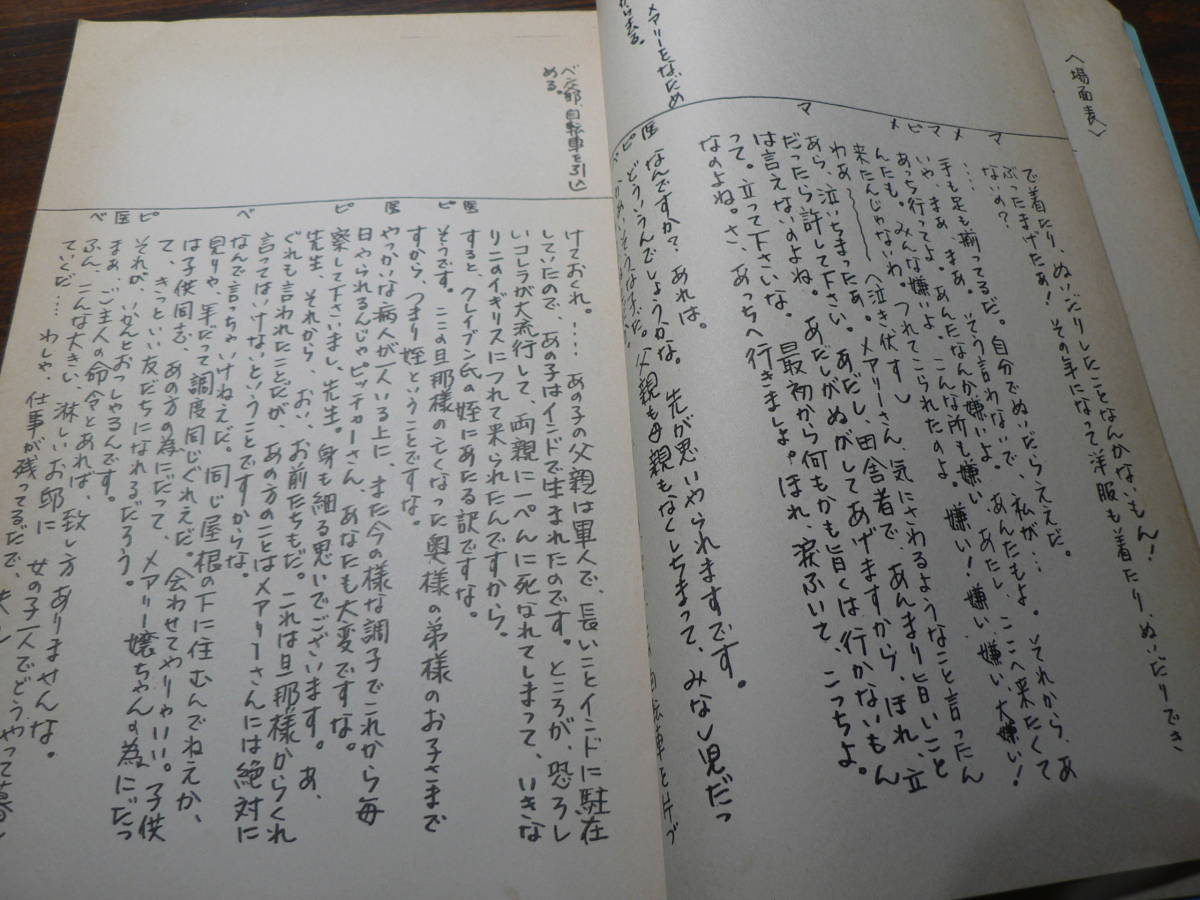 〈場面表〉
で着たり、ぬいだりしたことなんかないもん!
マ ぶったまげたぁ! その年になって洋服も着たり、ぬいだりでき
ないの?
メ …手も足も揃ってるだ。自分でぬいだらええだ。
マ いや、まあ、まあ。そう言わないで、私が…。それから、あ
メ あっち行ってよ。あんたなんか嫌いよ。あんたもよ。
んたも。みんな嫌いよ。こんな所も嫌い。嫌い!嫌い、嫌い、大嫌い!
来たんじゃないわ。つれてこられたのよ。
わあ〜〜〜〜〜 〈泣き伏す〉
マ あら、泣いちまったぁ。メアリーさん、気にさわるようなこと言ったん
だったら許して下さい。あだし、田舎者で、あんまり旨いこと
は言えないのよね。あだしがぬがしてあげますから、ほれ、立
って。立って下さいな。最初から何もかも旨くは行かないもん
なのよね。さ、あっちへ行きましょ。ほれ、涙ふいて、こっちよ。
メアリーをなだめ
医 なんですか? あれは。
ピ どういうんでしょうかな。先が思いやられますです。
父親も母親もなくしちまって、みなし児だっ
ベン爺、自転車を引込
める。
けておくれ。…あの子の父親は軍人で、長いことインドに駐在
していたので、あの子はインドで生まれたのです。ところが、恐ろし
いコレラが大流行して、両親に一ぺんに死なれてしまって、いきな
りこのイギリスにつれて来られたんですから。
医 すると、クレイブン氏の姪にあたる訳ですな。
ピ そうです。ここの旦那様の亡くなった奥様の弟様のお子さまで
すから、つまり姪ということですな。
医 やっかいな病人が一人いる上に、また今の様な調子でこれから毎
日やられるんじゃピッチャーさん、あなたも大変ですな。
ピ 察して下さいまし、先生。身も細る思いでございます。あ、
先生、それから、お、お前たちもだ。これは旦那様からくれ
ぐれも言われたことだが、あの方のことはメアリーさんには絶対に
言ってはいけないということですからな。
ベ なんで言っちゃいけねえだ。同じ屋根の下に住むんでねえか、
見りゃ、年だって調度同じぐれえだ。会わせてやりゃいい。子供
は子供同志、あの方の為にだって、メアリー嬢ちゃんの為にだっ
て、きっといい友だちになれるだろう。
ピ それが、いかんとおっしゃるんです。
医 まあ、ご主人の命令とあれば、致し方ありませんな。
ベ ふん、こんな大きい、淋しいお邸に、女の子一人でどうやって暮し
ていくだ…。わしゃ、仕事が残ってるだで、